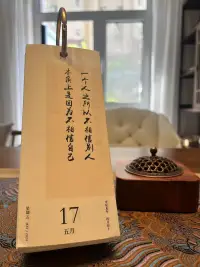 一个人之所以不相信别人
本质上是因为不相信自己
17
五月